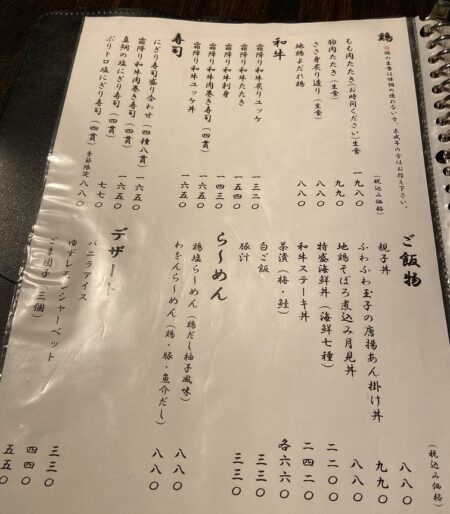 鶏
※鶏の生食は体調の優れない方、未成年の方はお控え下さい。
(税込み価格)
もも肉たたき(お時間ください)生食
胸肉たたき(生食) 九九〇
ささ身炙り造り(生食)
地鶏よだれ鶏
和牛
霜降り和牛炙りユッケ 一三二〇
霜降り和牛たたき 一五四〇
霜降り和牛刺身 一四三〇
霜降り和牛肉巻き寿司(四貫) 一六五〇
霜降り和牛ユッケ丼 一六五〇
寿司
にぎり寿司盛り合わせ(四種八貫) 一六五〇
霜降り和牛肉巻き寿司(四貫) 一六五〇
真鯛の塩にぎり寿司(四貫) 七七〇
ぶりトロ塩にぎり寿司(四貫)季節限定 八八〇
ご飯物
(税込み価格)
親子丼 八八〇
ふわふわ玉子の唐揚あん掛け丼 九九〇
地鶏そぼろ煮込み月見丼 八八〇
特盛海鮮丼(海鮮七種) 二二〇〇
和牛ステーキ丼 二四二〇
茶漬(梅・鮭) 各六六〇
白ご飯 三三〇
豚汁 三三〇
ら〜めん
鶏塩ら〜めん(鶏だし柚子風味) 八八〇
わをんら〜めん(鶏・豚・魚介だし) 八八〇
デザート
バニラアイス 三三〇
ゆずレモンシャーベット 四四〇
ごま団子(三個) 五五〇